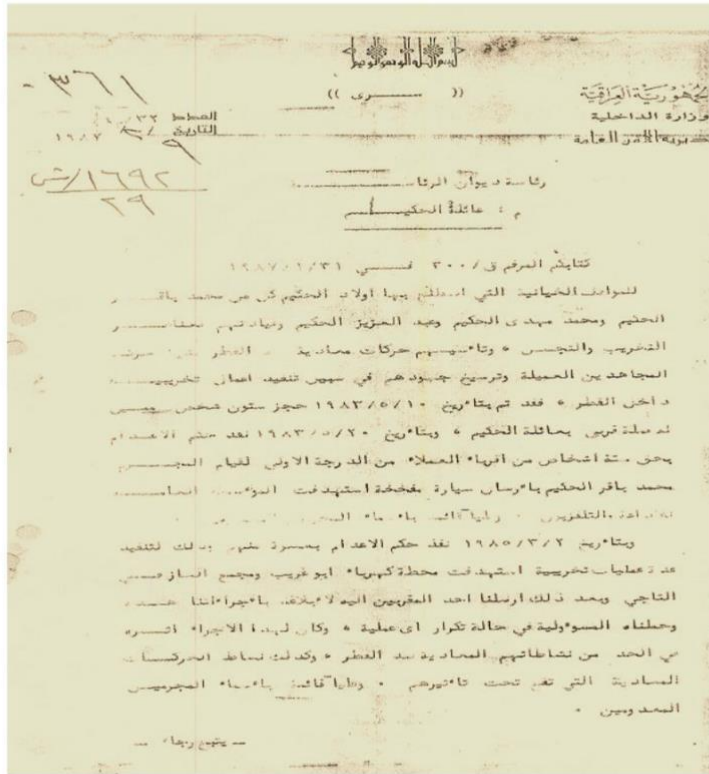 بسم الله الرحمن الرحيم
٣٦١
(( سري ))
الجمهورية العراقية
وزارة الداخلية
مديرية الأمن العامة
العدد
التاريخ ٩ / ٣ / ١٩٨٧
١٦٩٢/ش
٢٩
رئاسة ديوان الرئاسة
م : عائلة الحكيم
كتابكم المرقم ق/٢٠٠ فــي ١٩٨٧/١/٣١
للمواقف الخيانية التي اضطلع بها اولاد الحكيم كل من محمد باقر
الحكيم ومحمد مهدي الحكيم وعبد العزيز الحكيم وقيادتهم
التخريب والتجسس ، وتأسيسهم حركات معادية القطر
المجاهدين العميلة وترسيخ جهودهم في سبيل تنفيذ اعمال تخريبيـــة
داخل القطر ، فقد تم بتأريخ ١٩٨٣/٥/١٠ حجز ستون شخص
له صلة قربى بعائلة الحكيم ، وبتأريخ ١٩٨٣/٥/٢٠ نفذ حكم الاعدام
بحق ستة اشخاص من اقرباء العملاء من الدرجة الاولى لقيام المجـــرم
محمد باقر الحكيم بأرسال سيارة مفخخة استهدفت المؤسسة العامـــة
للاذاعة والتلفزيون . وطيا قائمة بأسماء
وبتأريخ ١٩٨٥/٣/٢ نفذ حكم الاعدام بعشرة منهم وذلك لتنفيذ
عدة عمليات تخريبية استهدفت محطة كهرباء ابو غريب ومجمع الغاز فــي
التاجي وبعد ذلك ارسلنا احد المقربين اليه لابلاغه بأجراءاتنا
وحملناه المسؤولية في حالة تكرار اي عملية ، وكان لهذا الاجراء اثــره
في الحد من نشاطاتهم المعادية ضد القطر ، وكذلك نشاط الحركـــات
المعادية التي تقع تحت تأثيرهم . وطيا قائمة بأسماء المجرميـــن
المعدومين .
ــ يتبع رجاء ــ